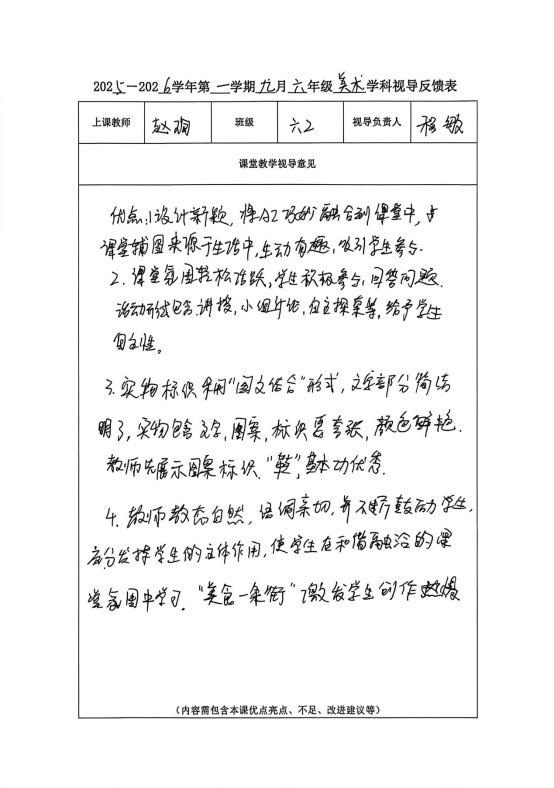 2025—2026学年第一学期九月六年级美术学科视导反馈表
上课教师 赵 班级 六2 视导负责人 程敏
课堂教学视导意见
优点:1设计新颖，将AI巧妙融合到课堂中，
课堂插图来源于生活中，生动有趣，吸引学生参与.
2. 课堂氛围轻松活跃，学生积极参与，回答问题.
活动形式包含讲授，小组讨论，自主探索等，给予学生
自主性。
3. 实物标识采用"图文结合"形式，文字部分简洁
明了，实物包含文字，图案，标识要夸张，颜色鲜艳.
教师先展示图案标识."鞋"，基本功优秀.
4. 教师教态自然，语调亲切，并不断鼓动学生，
充分发挥学生的主体作用，使学生在和谐融洽的课
堂氛围中学习."美食一条街"激发学生创作
（内容需包含本课优点亮点、不足、改进建议等）